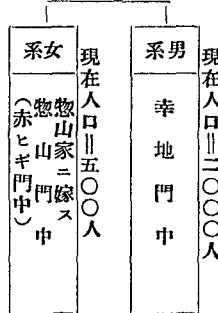 現在人口＝二〇〇〇人
男系
幸地門中
現在人口＝五〇〇人
女系
惣山家ニ嫁ス
惣山門中
（赤ヒギ門中）